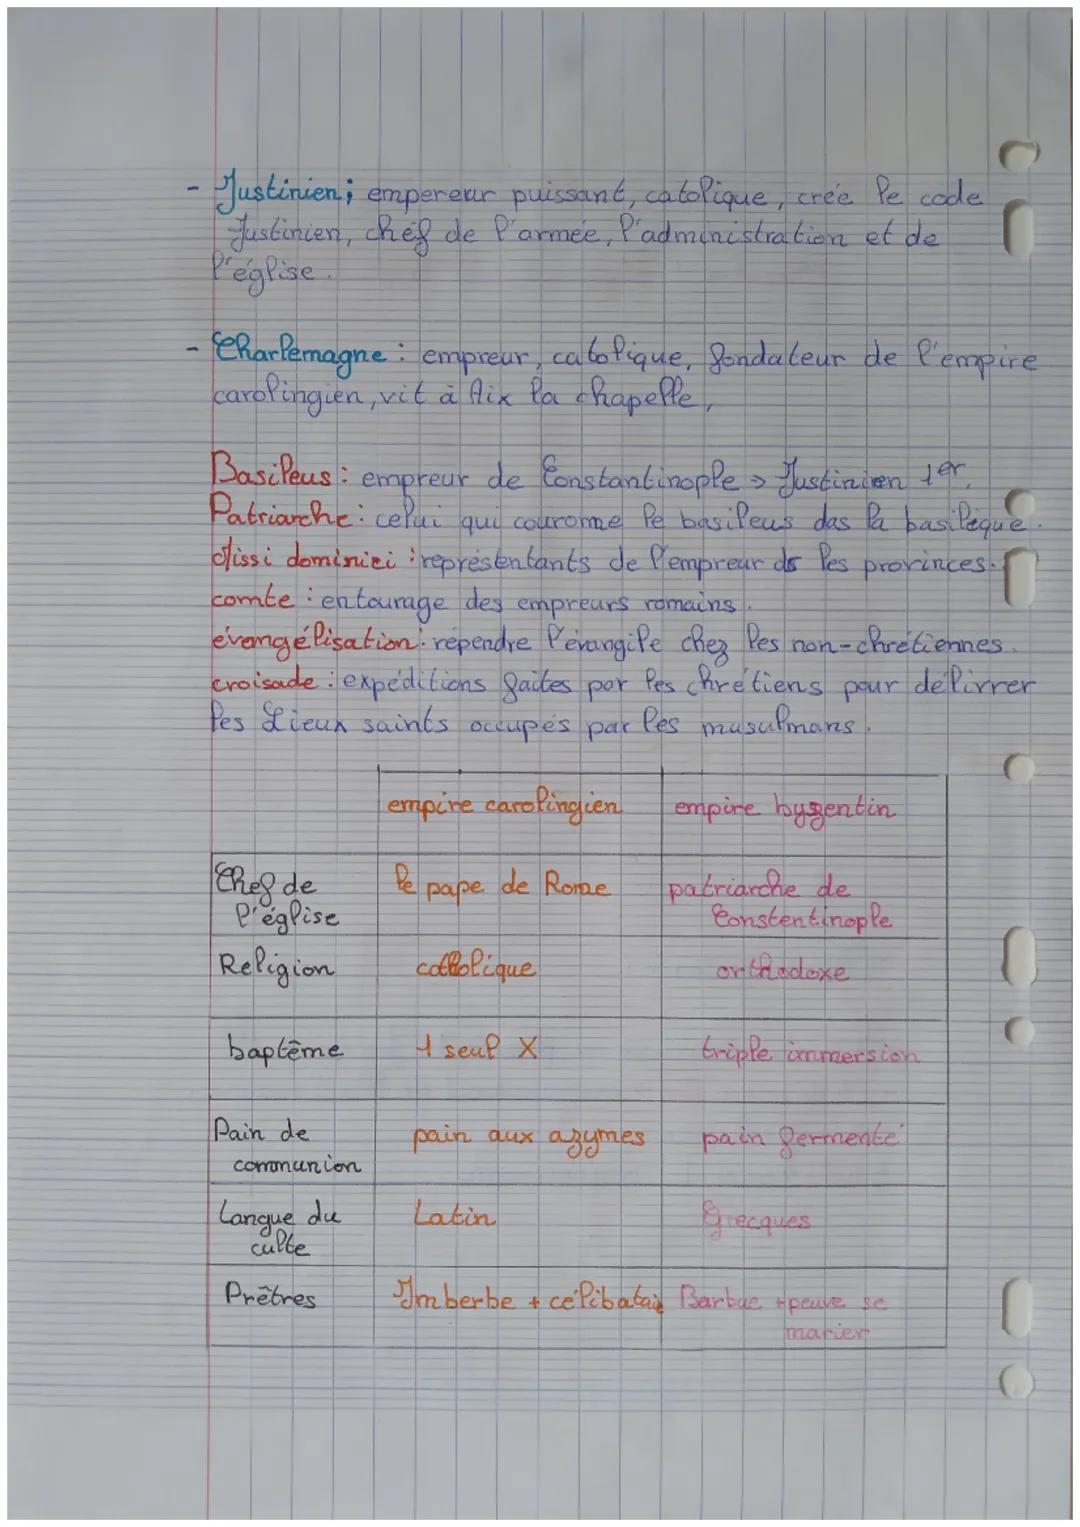 - Justinien; empereur puissant, catolique, crée le code
Justinien, chef de l'armée, l'administration et de
l'église.
- Charlemagne : empreur, catolique, fondateur de l'empire
carolingien, vit à Aix la chapelle,
Basileus : empreur de Constantinople > Justinien 1er.
Patriarche : celui qui couronne le basileus das la basilique.
Missi dominici : représentants de l'empreur ds les provinces.
comte : entourage des empreurs romains.
évangélisation : répendre l'évangile chez les non-chrétiennes.
croisade : expéditions faites par les chrétiens pour délivrer
les Lieux saints occupés par les musulmans.
empire carolingien empire byzentin
Chef de le pape de Rome patriarche de
l'église Constentinople
Religion catholique orthodoxe
baptême 1 seul X triple immersion
Pain de pain aux azymes pain fermenté
communion
Langue du Latin Grecques
culte
Prêtres Imberbe + célibatair Barbue + peuve se
marier